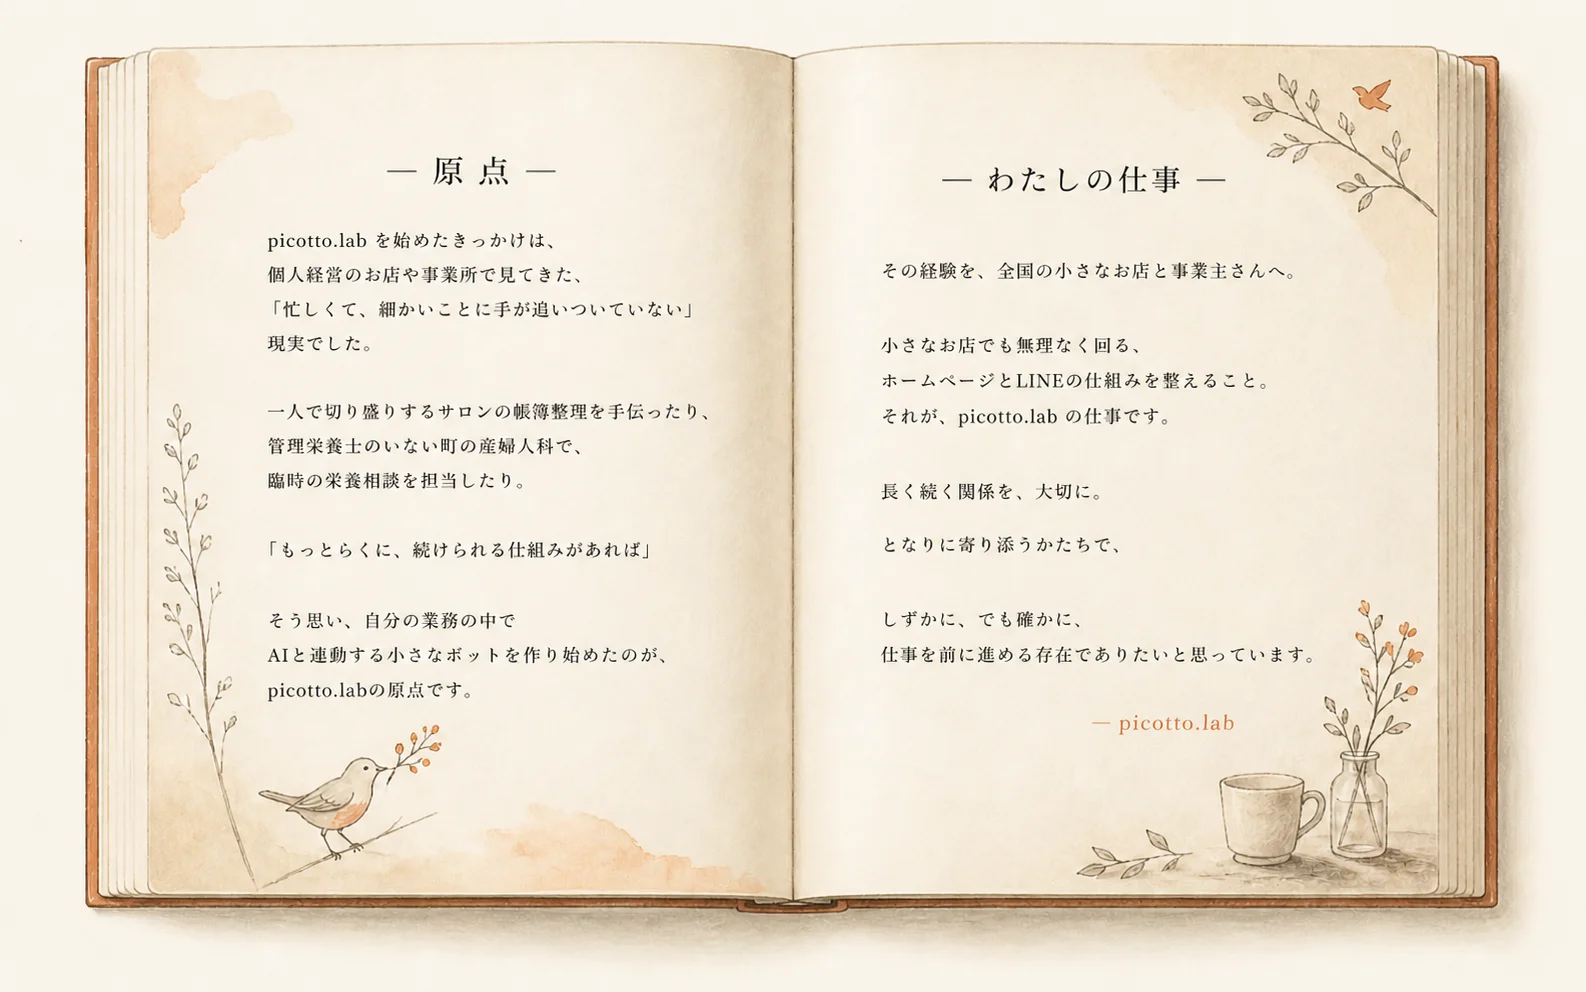 — 原点 —
picotto.lab を始めたきっかけは、
個人経営のお店や事業所で見てきた、
「忙しくて、細かいことに手が追いついていない」
現実でした。
一人で切り盛りするサロンの帳簿整理を手伝ったり、
管理栄養士のいない町の産婦人科で、
臨時の栄養相談を担当したり。
「もっとらくに、続けられる仕組みがあれば」
そう思い、自分の業務の中で
AIと連動する小さなボットを作り始めたのが、
picotto.labの原点です。
— わたしの仕事 —
その経験を、全国の小さなお店と事業主さんへ。
小さなお店でも無理なく回る、
ホームページとLINEの仕組みを整えること。
それが、picotto.lab の仕事です。
長く続く関係を、大切に。
となりに寄り添うかたちで、
しずかに、でも確かに、
仕事を前に進める存在でありたいと思っています。
— picotto.lab